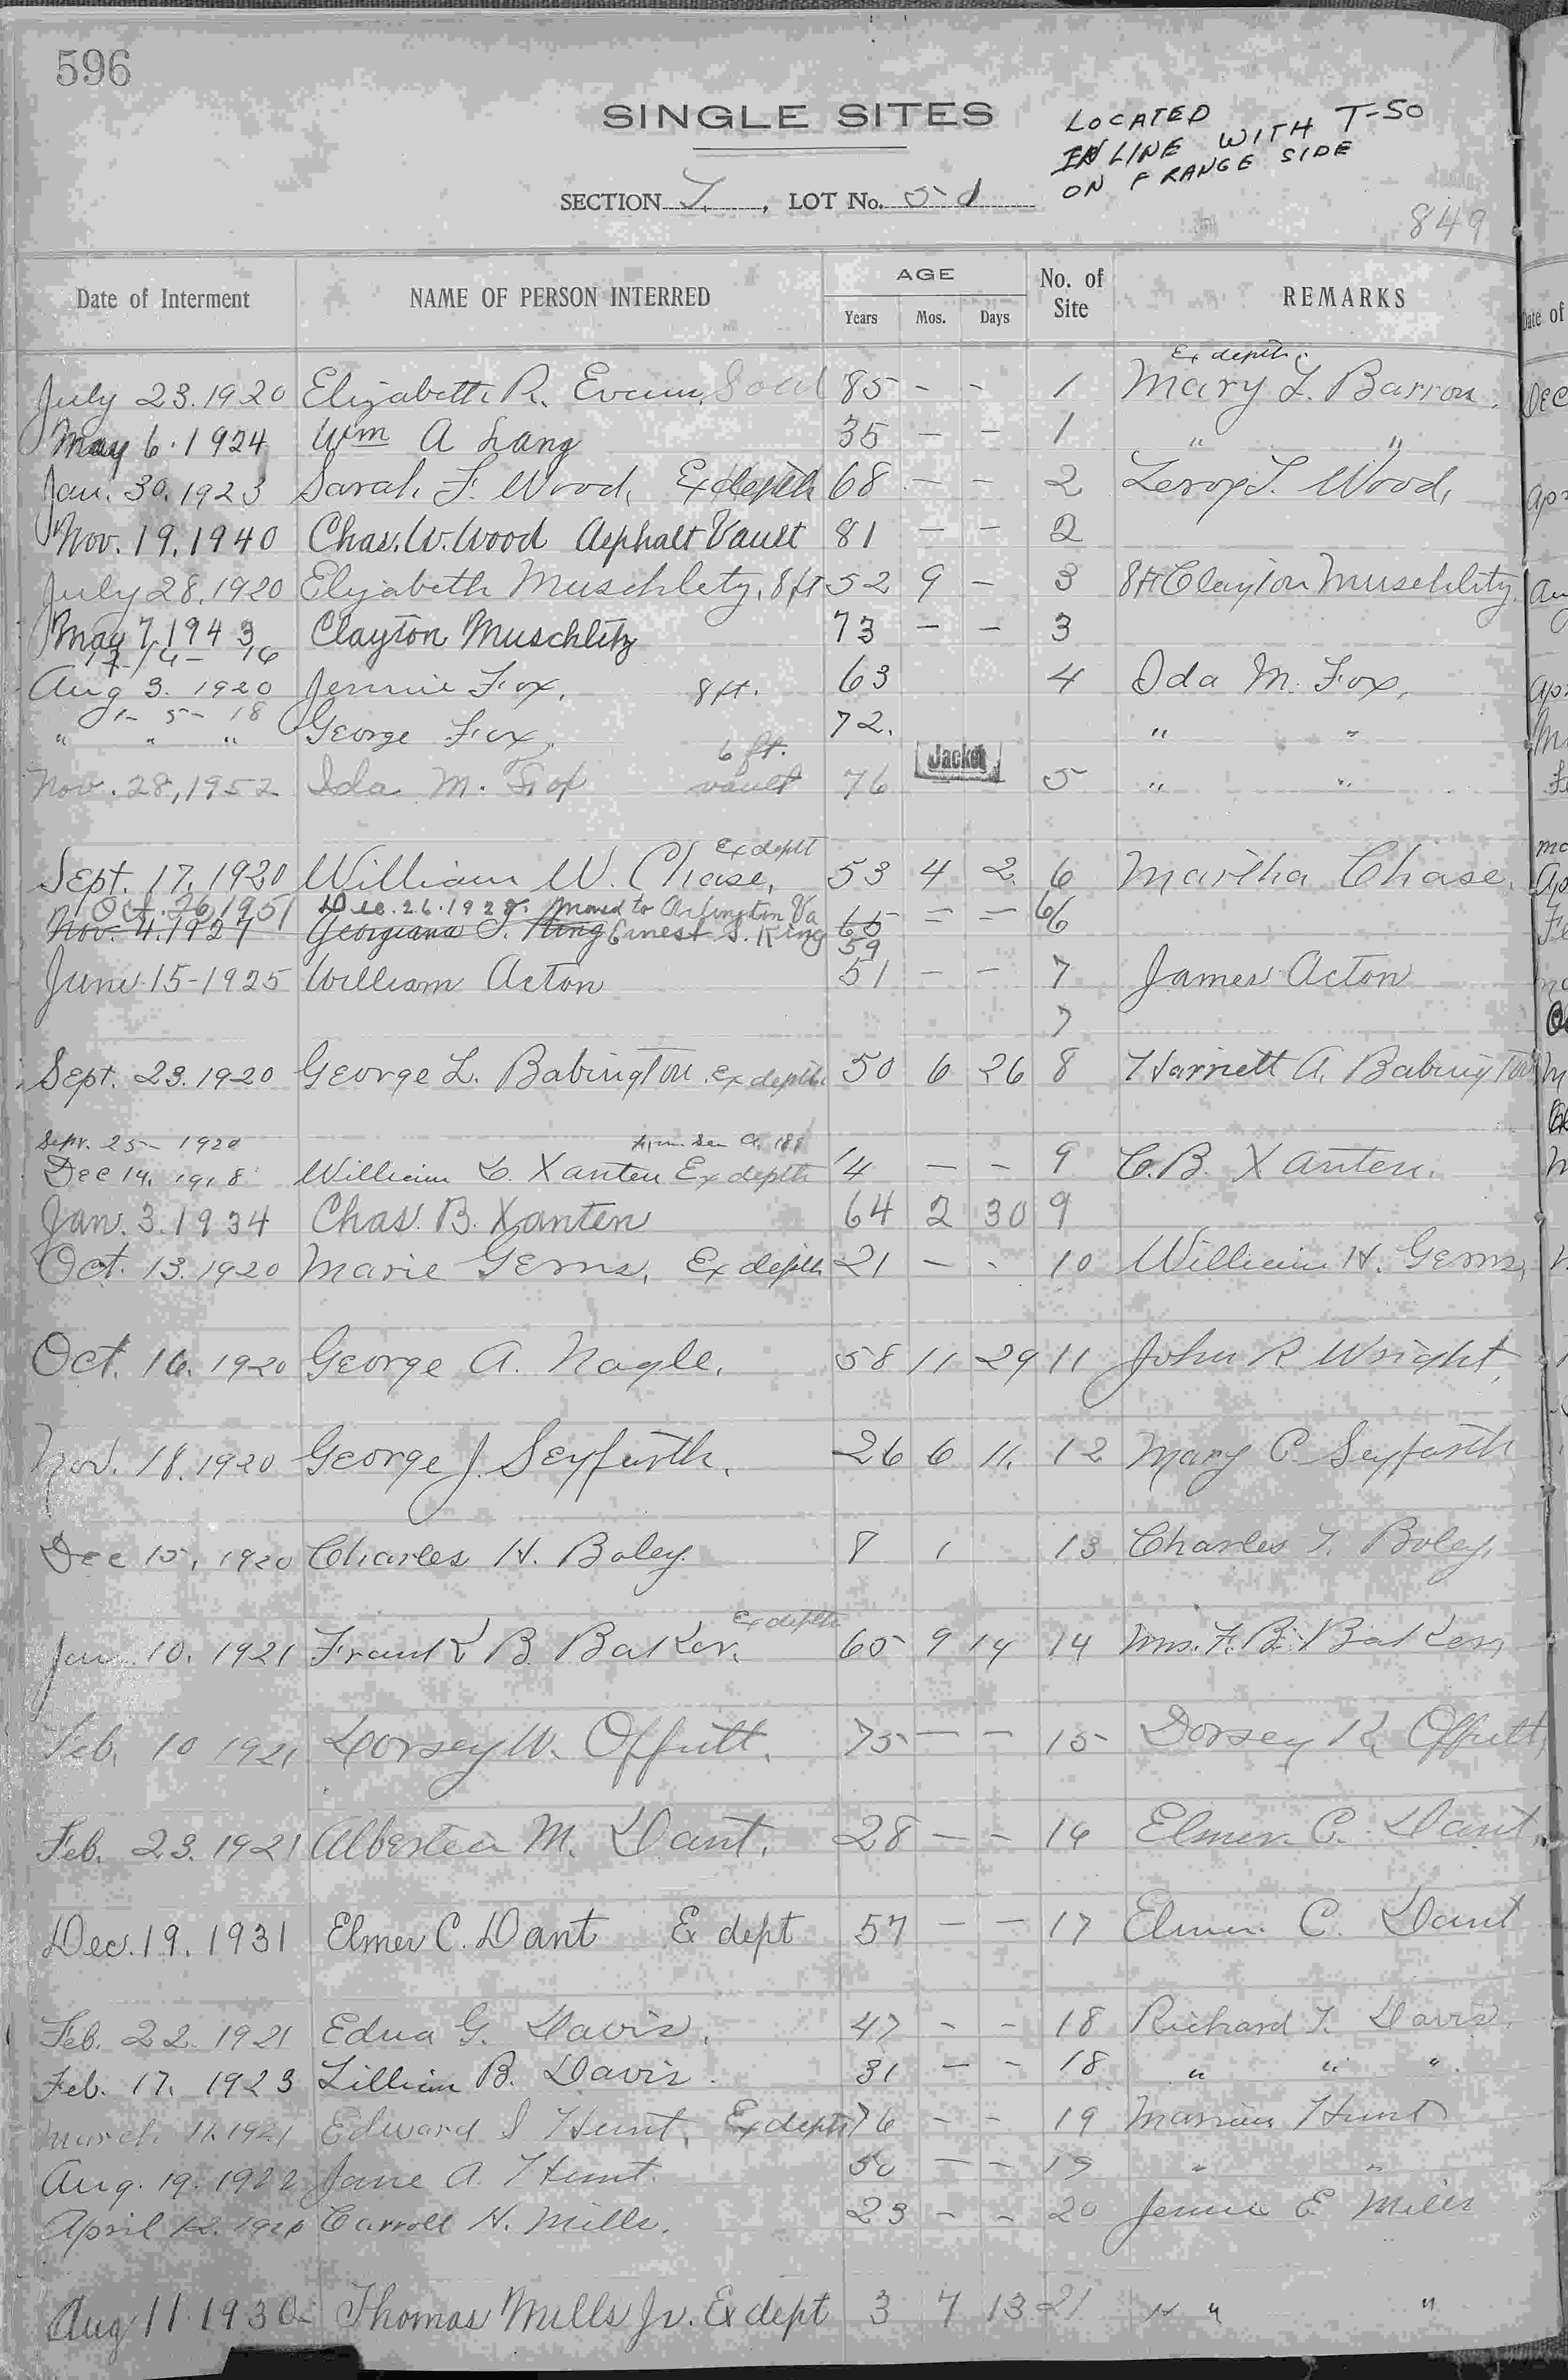 596
SINGLE SITES
LOCATED
IN LINE WITH T-50
ON F RANGE SIDE
SECTION T, LOT No. 51
849
Date of Interment NAME OF PERSON INTERRED AGE Years Mos. Days No. of Site REMARKS
Ex depth
July 23. 1920 Elizabeth R. Evans 85 - - 1 Mary L. Barron.
May 6. 1924 Wm A Lang 35 - - 1 " "
Jan. 30. 1923 Sarah F. Wood, Ex depth 68 - - 2 Leroy T. Wood,
Nov. 19. 1940 Chas. W. Wood Asphalt Vault 81 - - 2
July 28. 1920 Elizabeth Muschlitz, 8 ft 52 9 - 3 8 ft Clayton Muschlitz.
May 7 1943 Clayton Muschlitz 73 - - 3
Aug 3. 1920 Jennie Fox, 8 ft. 63 4 Ida M. Fox,
" " " George Fox, 72. " "
Nov. 28, 1952 Ida M. Fox 6 ft. vault 76 Jacket 5 " "
Sept. 17. 1920 William W. Chase, Ex dept 53 4 2. 6 Martha Chase.
Oct. 26 1951 Dec. 26. 1928. Moved to Arlington Va
Nov. 4. 1927 Georgiana T. King Ernest S. King 65 59 = = 66
June 15-1925 William Acton 51 - - 7 James Acton
7
Sept. 23. 1920 George L. Babington. Ex depth. 50 6 26 8 Harriett A. Babington
Sept. 25- 1920
Dec 14. 1918 William C. Xanten Ex depth 14 - - 9 C. B. Xanten.
Jan. 3. 1934 Chas. B. Xanten 64 2 30 9
Oct. 13. 1920 Marie Gerns, Ex depth 21 - - 10 William H. Gerns,
Oct. 16. 1920 George A. Nagle. 58 11 29 11 John R Wright,
Nov. 18. 1920 George J. Seyfurth. 26 6 11. 12 Mary C. Seyfurth
Dec 15, 1920 Charles H. Boley. 8 1 13 Charles T. Boley,
Jan. 10. 1921 Frank B. Baker. Ex depth 65 9 14 14 Mrs. F. B. Baker,
Feb. 10 1921 Dorsey W. Offutt. 75 - - 15 Dorsey K. Offutt,
Feb. 23. 1921 Alberta M. Dant. 28 - - 16 Elmer C. Dant,
Dec. 19. 1931 Elmer C. Dant Ex dept 57 - - 17 Elmer C. Dant
Feb. 22. 1921 Edna G. Davis. 47 - - 18 Richard T. Davis.
Feb. 17. 1923 Lillian B. Davis. 31 - - 18 " " "
March 11. 1921 Edward S Hunt. Ex depth 76 - - 19 Marian Hunt
Aug. 19. 1922 Jane A. Hunt. 50 - - 19 " "
April 12. 1920 Carroll H. Mills. 23 - - 20 Jennie E. Mills
Aug 11 1930- Thomas Mills Jr. Ex dept 3 7 13 21 " " "